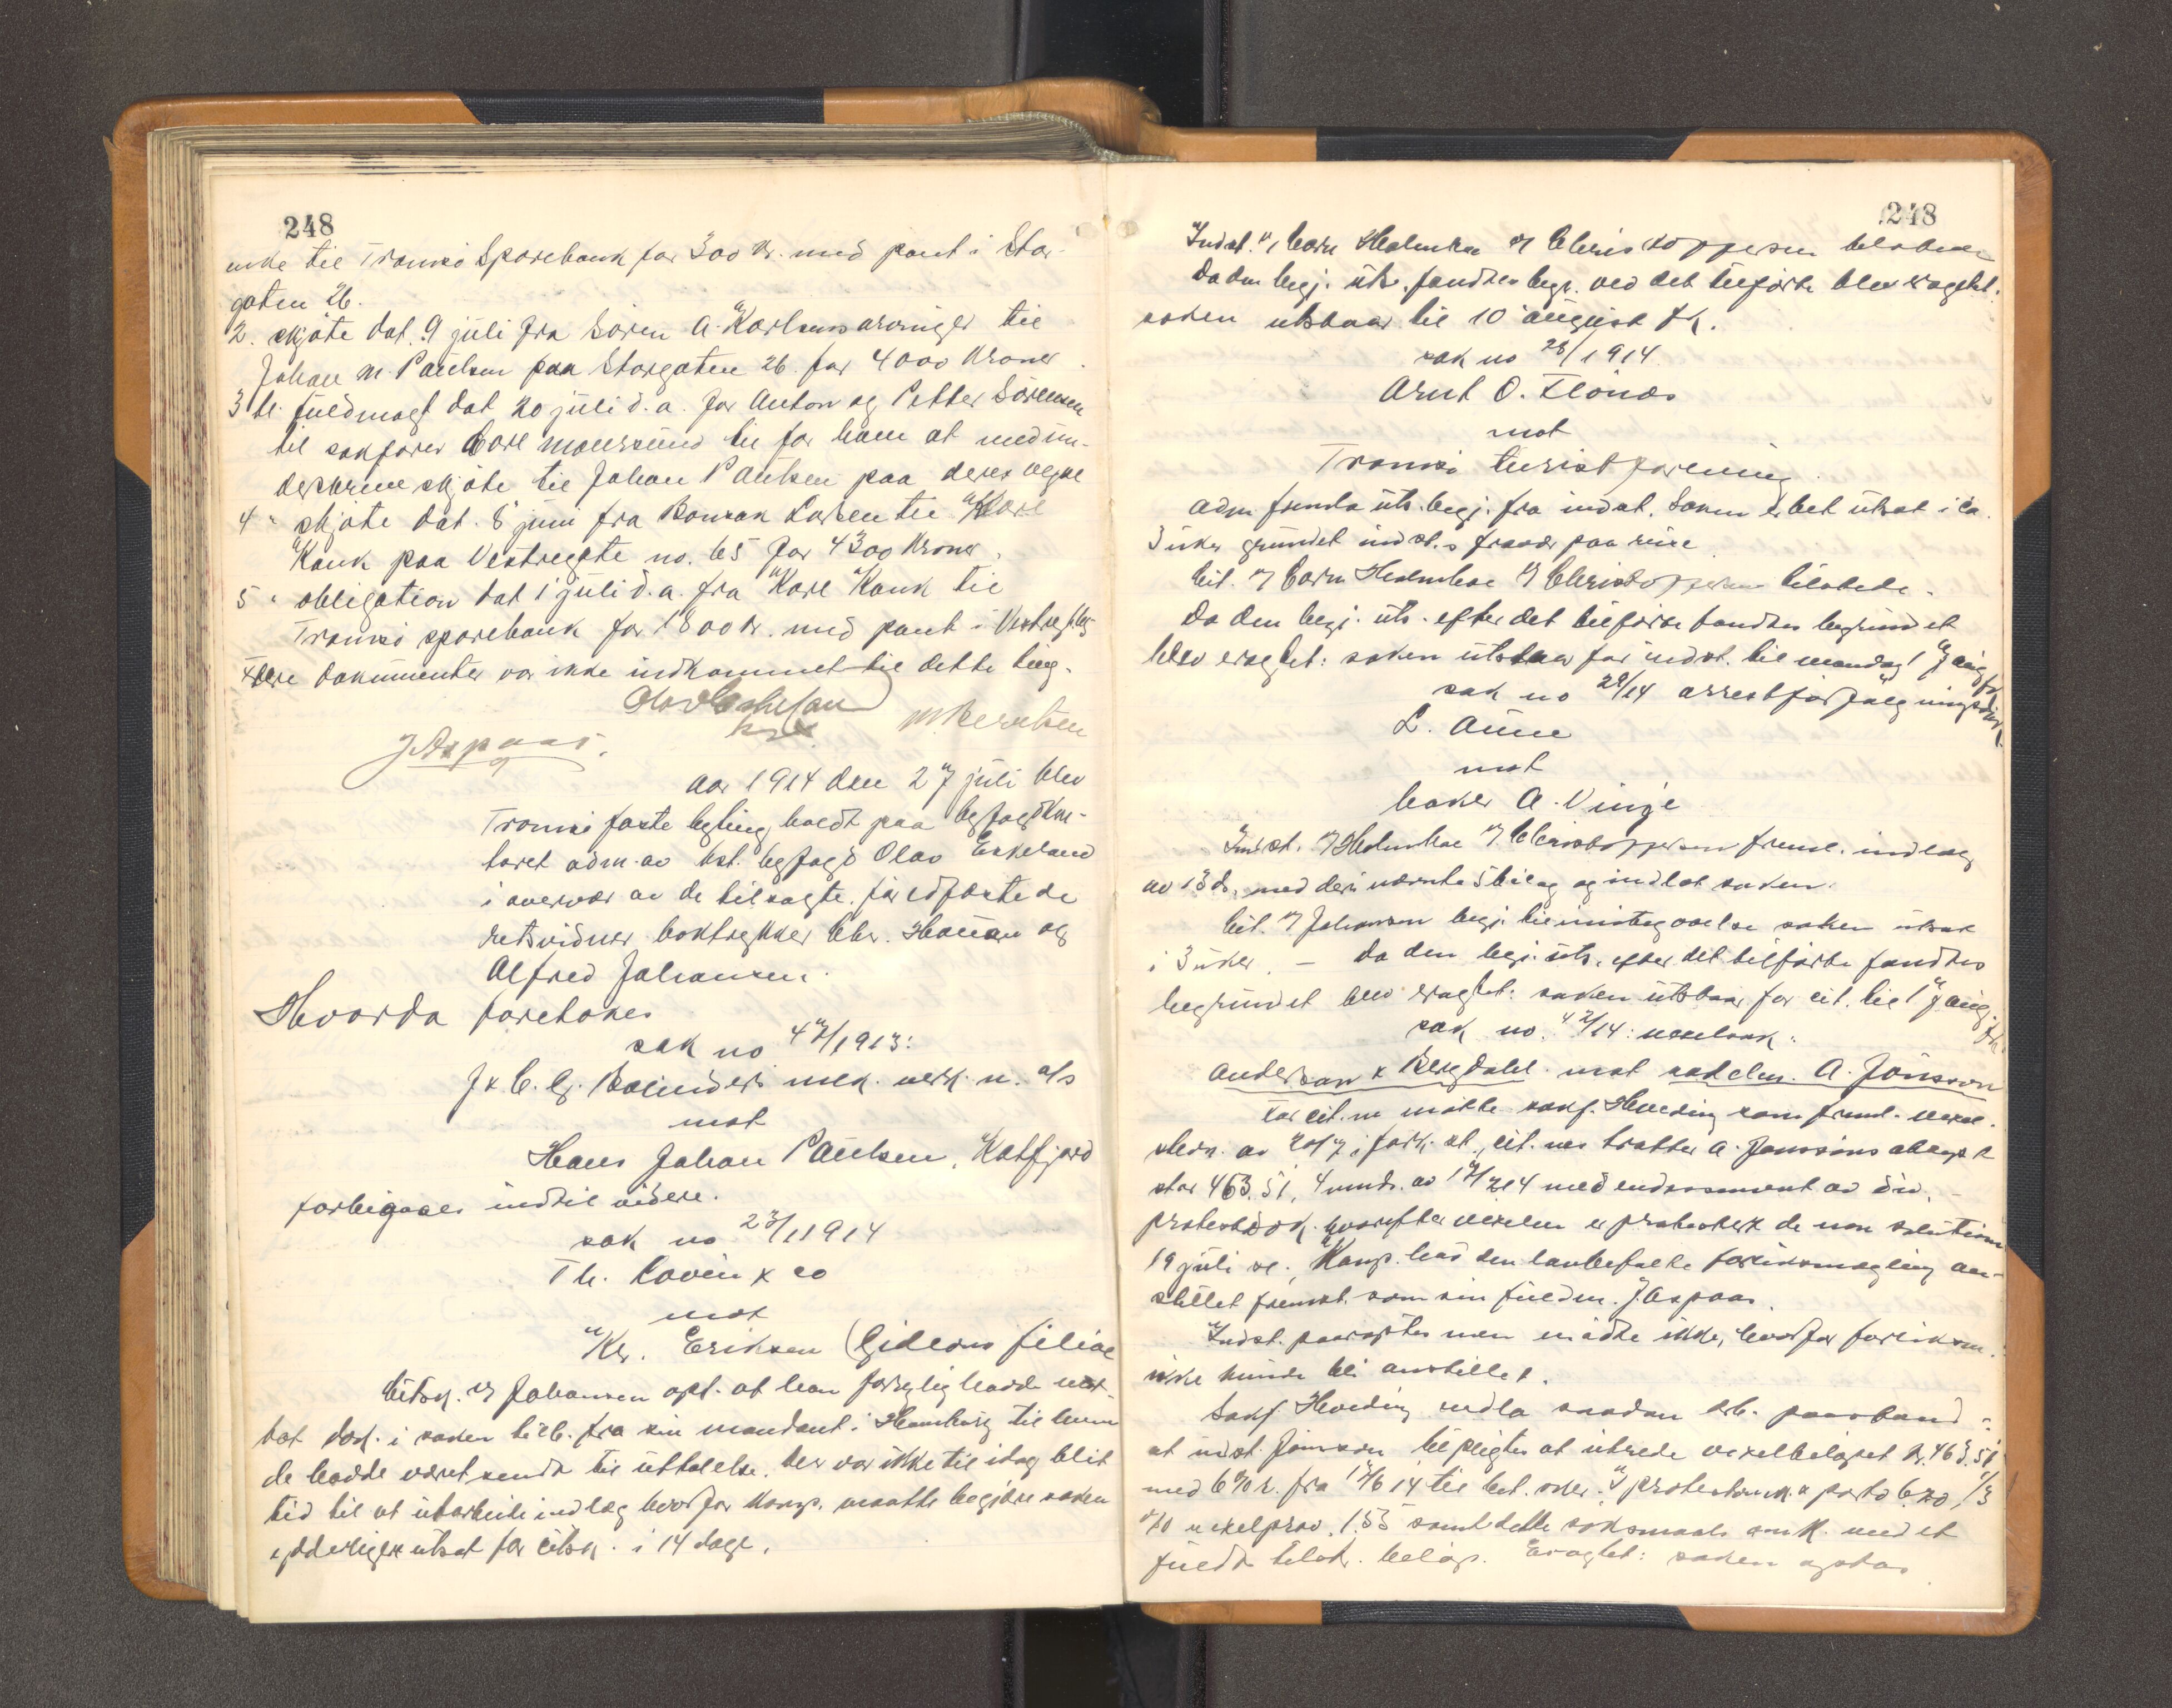 248
enke til Tromsö Sparebank for 300 kr. med pant i Stor-
gaten 26.
2. skjöte dat. 9 juli fra Sören A. Karlsens arvinger til
Johan M. Paulsen paa Storgaten 26 for 4000 kroner
3 tl. fuldmagt dat 20 juli d.a. for Anton og Petter Sörensen
til sakförer Carl Moursund til for ham at medun-
derskrive skjöte til Johan Paulsen paa deres vegne
4 " skjöte dat. 8 juni fra Larsen til Karl
Kank paa Vestregate no. 65 for 4300 kroner.
5 " obligation dat 1 juli d.a. fra Karl Kank til
Tromsö sparebank for 1800 kr. med pant i Vestregt 65
Flere dokumenter var ikke indkommet til dette ting.
M. Berntsen
J. Aspaas.
Aar 1914 den 27 juli blev
Tromsö faste byting holdt paa byfogdkon-
toret adm. av kst. byfogd Olav Eskeland
i overvær av de tilsagte før edfæstede
retsvidner boktrykker Chr. Hauan og
Alfred Johansen.
Hvorda foretokes
sak no 47/1913:
J & C. G. Bolinders mek. verk. n. a/s
mot
Hans Johan Paulsen, Katfjord
forbigaaes indtil videre.
sak no 23/1914
Th. Lovén & co
mot
Kr. Eriksen (Gideons filial
Citsk. v/ Johansen opl. at han forgjeves hadde mot-
tat dok. i saken tilb. fra sin mandant i Hamburg til hvem
de hadde været sendt til uttalelse. Der var ikke til idag blit
tid til at utarbeide indlæg hvorfor komp. maatte begjære saken
ydderligere utsat for citsk. i 14 dage.
248
Indst. v/ Carn Holmboe v/ Christoffersen tilstede
Da den begj. uts. fandtes begr. ved det tilförte blev eragtet:
saken utstaar til 10 august fk.
sak no 28/1914
Arnt O. Flönes
mot
Tromsö turistforening
Adm fremla uts. begj. fra indst. Saken er bet utsat i ca.
3 uker grundet indst.s fravær paa reise
Cit. v/ Carn Holmboe v/ Christoffersen tilstede.
Da den begj. uts. efter det tilförte fandtes begrundet
blev eragtet: saken utstaar for indst. til mandag 17 aug fk.
sak no 29/14 arrestforfølgning
L. Aune
mot
baker A. Vinje
Indst. v/ Holmboe v/ Christoffersen freml. indlæg
av 13 ds. med deri nævnte 5 bilag og indlot saken.
Cit. v/ Johansen begj. til imøtegaaelse saken utsat
i 3 uker. - Da den begj. uts. efter det tilförte fandtes
begrundet blev eragtet: saken utstaar for cit. til 17 aug. fk.
sak no. 42/14: vexelsak:
Anderson & Bergdahl mot sadelm. A. Jönsson
For cit.ne mötte sakf. Hveding som freml. vexel-
stevn. av 20/7 i fork. st., cit. nes tratte A. Jonssons aksept
stor 463.51, 4 mndr. av 17/2 14 med endossement av div. -
protestdok. hvorefter vexelen er protestert de non solutione
19 juli sl. Komp. had den lovbefalte forliksmegling an-
stillet fremst. som sin fuldm. J. Aspaas.
Indst. paaroptes men mödte ikke, hvorfor forliksm.
ikke kunde bli anstillet.
Sakf Hveding nedla saadan erb. paastand:
at indst. Jönsson tilpligtes at utrede vexelbelöpet kr. 463.51
med 6% r. fra 17/6 14 til bet. sker, protestomk. & porto 6.70, 1/3
% vexelprov. 1.55 samt dette söksmaals omk. med et
fuldt tilstr. belöp. Eragtet: saken optas